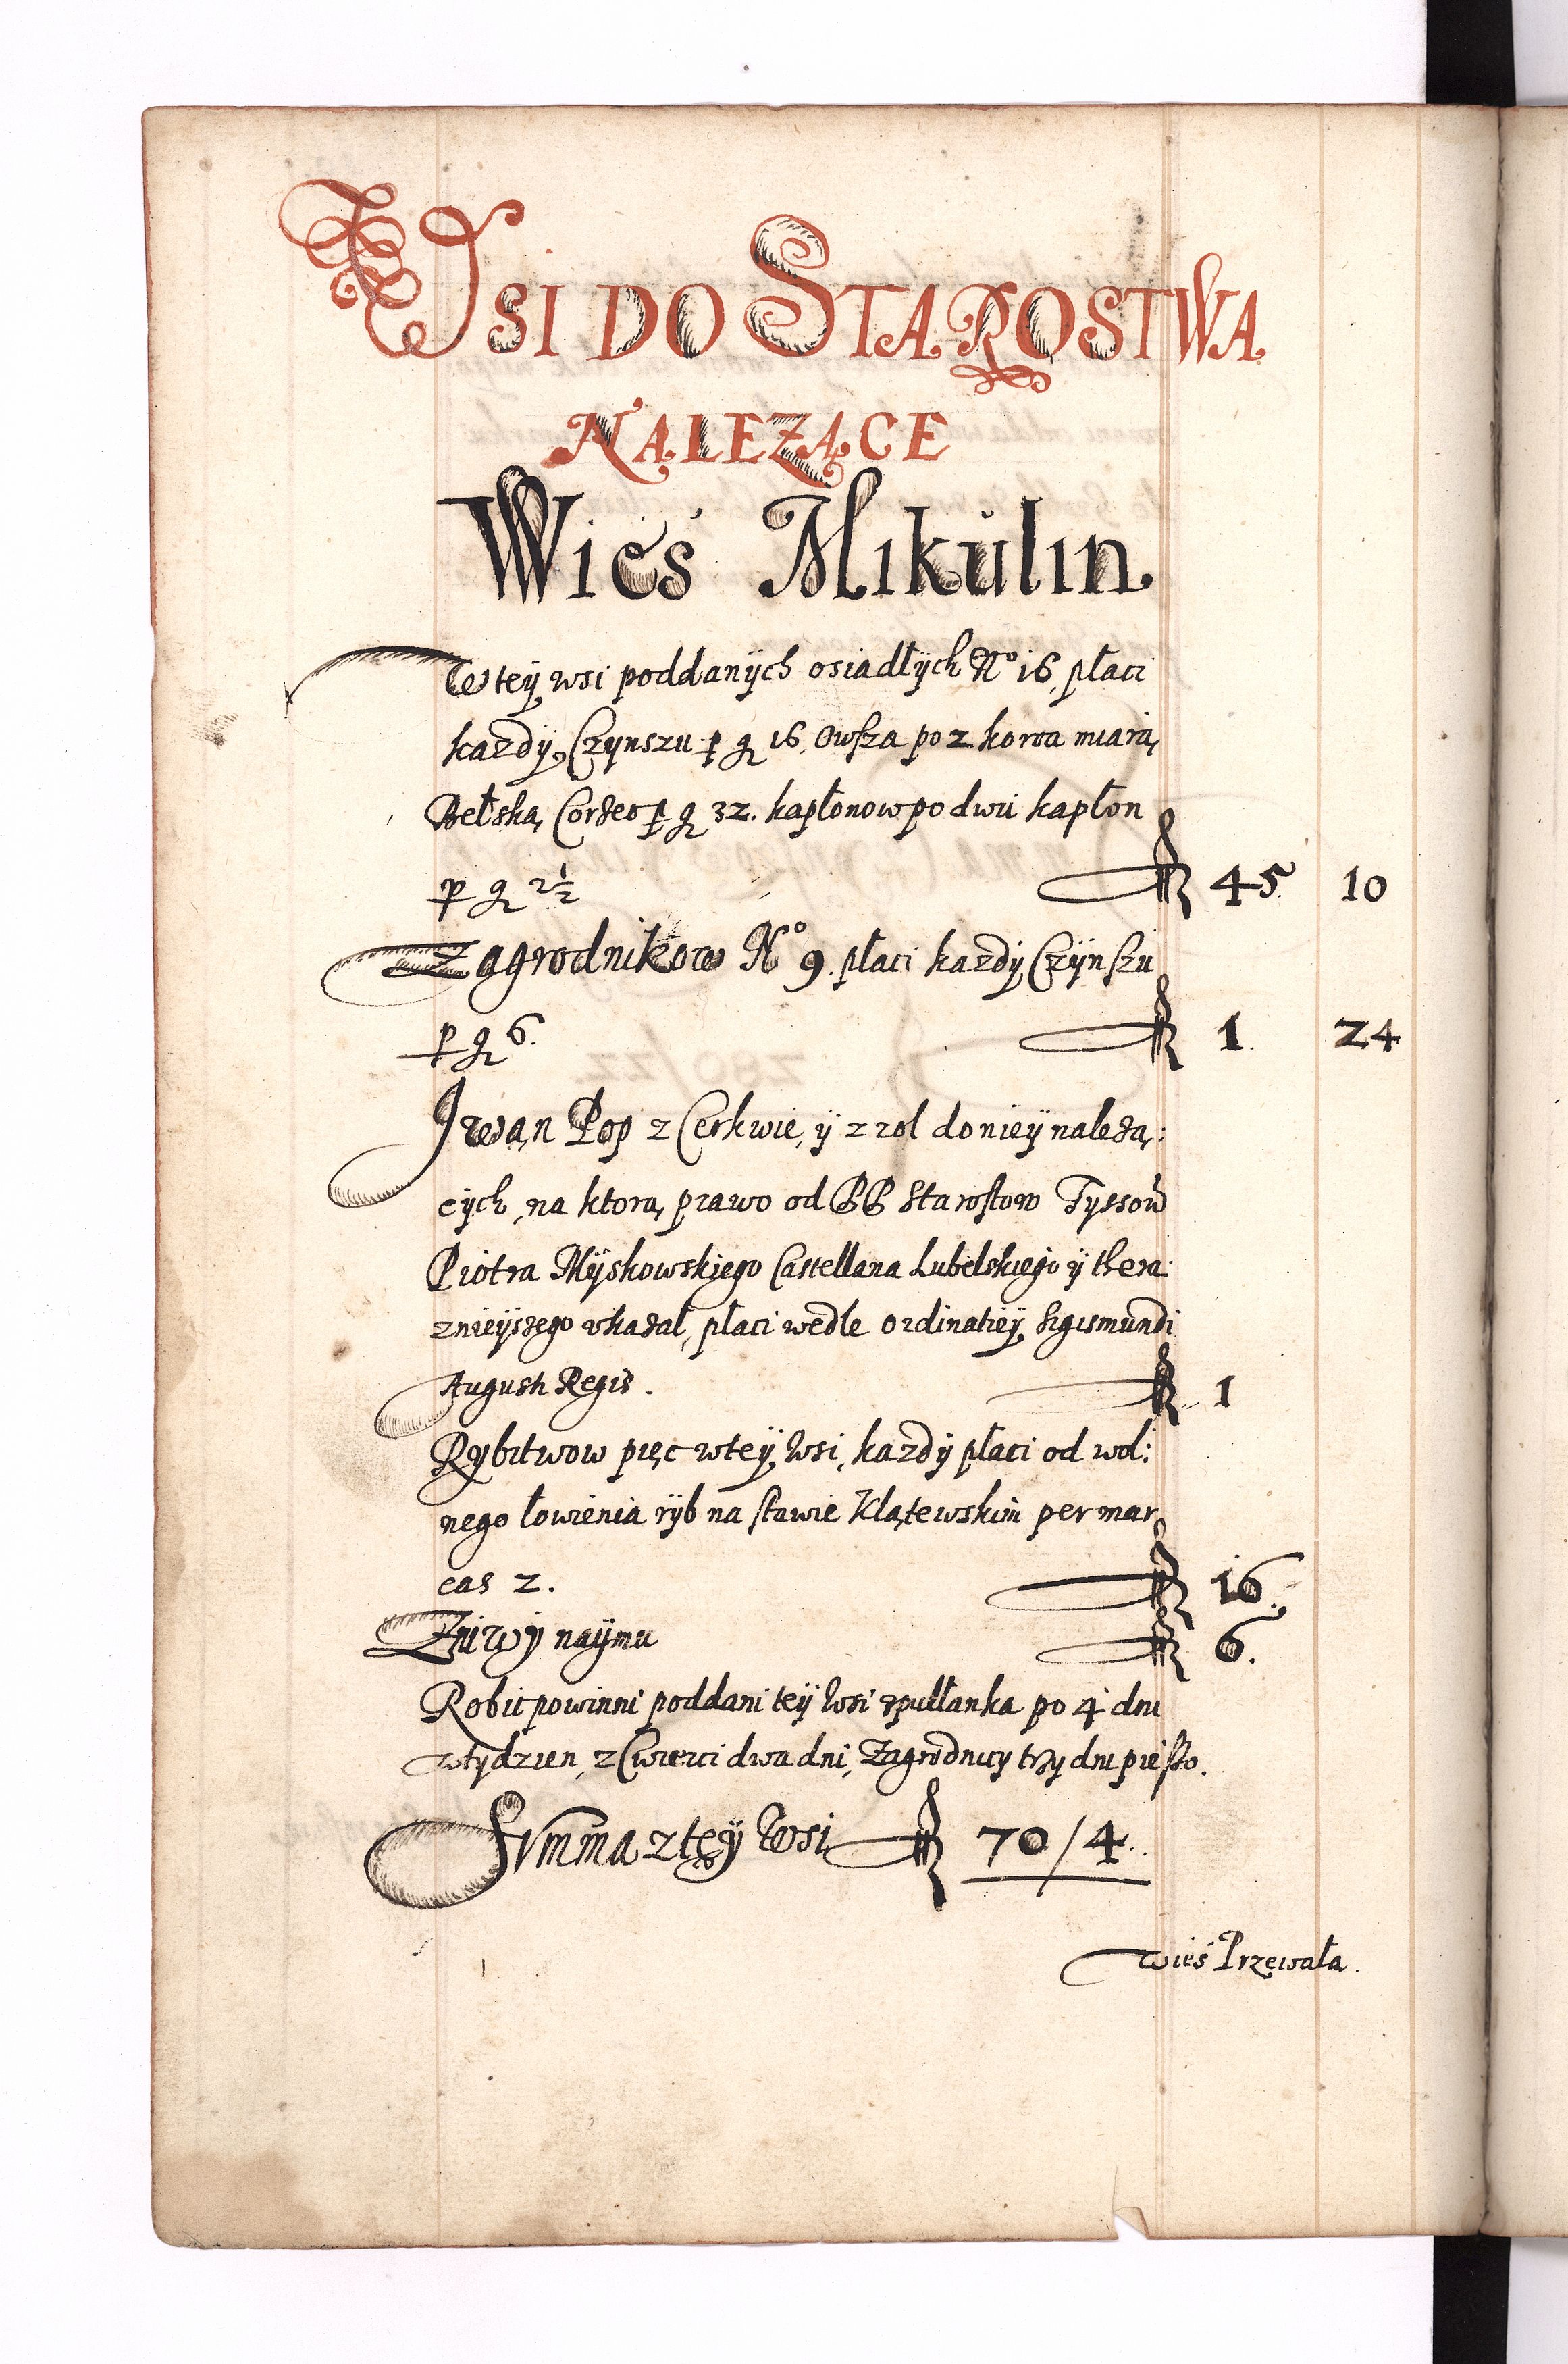 WSI DO STAROSTWA
NALEZĄCE
Wieś Mikulin
W tey wsi poddanÿch osiadłÿch No 16, płaci
kazdÿ, Czÿnszu p g 16, Owsza po 2 korca miarą
Bełską, Corzec p g 32. kapłonow po dwu kapłon
p g 2½ 45. 10
Zagrodnikow No 9. płaci kazdÿ Czÿnszu
p g 6. 1. 24
Jwan Pop z Cerkwie, ÿ z rol do nieÿ nalezą:
cÿch, na ktorą prawo od PP Starostow Tyssow
Piotra Mÿskowskiego Castellana Lubelskiego ÿ thera
znieÿszego vkazał, płaci wedle ordinatieÿ Sigismundi
Augusti Regis. 1
Rybitwow pięc w teÿ wsi, kazdÿ płaci od wol:
nego łowienia rÿb na stawie Klątewskim per mar
cas 2. 16.
Zniwÿ naÿmu 6.
Robic powinni poddani teÿ wsi z pułłanka po 4 dni
w tydzien, z Cwierci dwa dni, Zagrodnicy trzy dni pieszo.
Summa z teÿ wsi 70/4.
wieś Przewała.